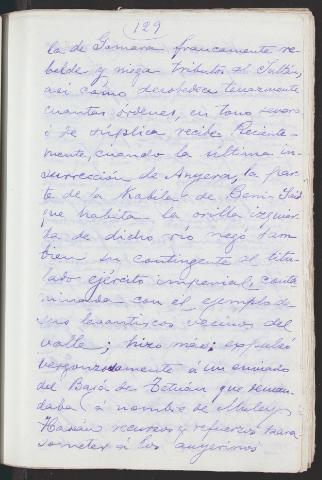 129
la de Gomara francamente re-
belde y niega tributos al Sultán,
asi como desobedece tenazmente
cuantas órdenes, en tono severo
ó de súplica recibe. Reciente-
mente, cuando la última in-
surrección de Angera, la par-
te de la Kabila de Beni-Said
que habita la orilla izquier-
da de dicho río negó tam-
bien su contingente al titu-
lado ejército imperial, conta
minada con el ejemplo de
sus levantiscos vecinos del
valle; hizo más; expulsó
vergonzosamente á un enviado
del Bajá de Tetuán que deman-
daba á nombre de Muley
Hassan recursos y refuerzos para
someter á los angerinos